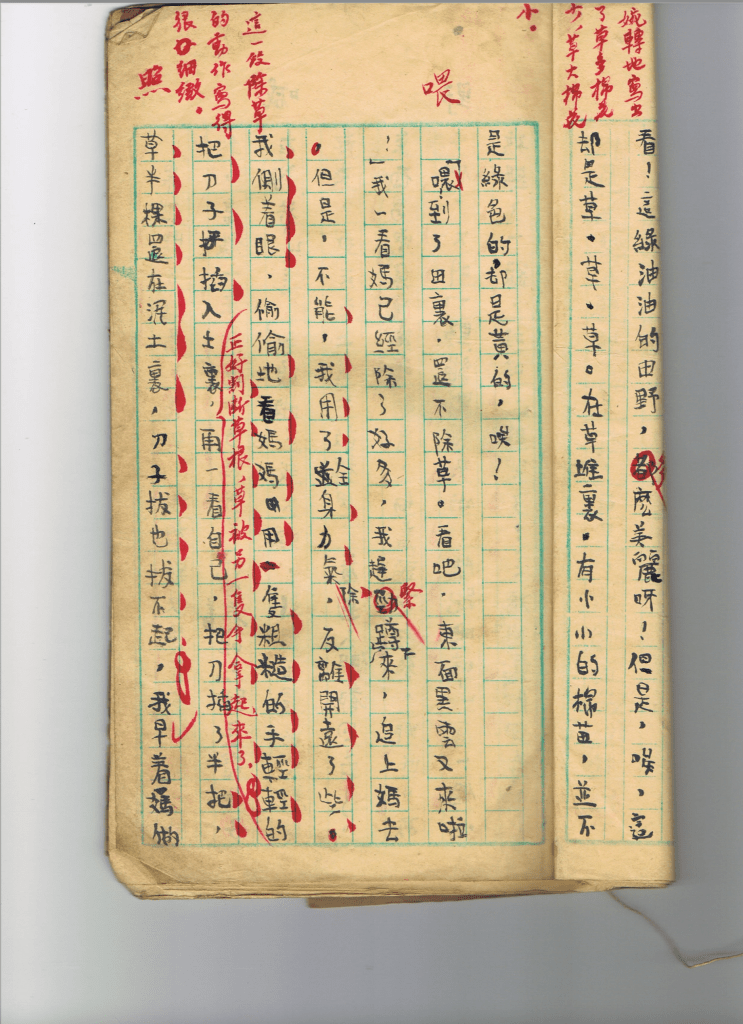 婉轉地寫出
了草多棉花
少，草大棉花
小。
看！這綠油油的田野，多麼美麗呀！但是，唉，這
却是草，草，草。在草堆裏，有小小的棉苗，並不
是綠色的，却是黃的，唉！
喂
「喂！到了田裏，還不除草。看吧，東面黑雲又來啦
！」我一看媽已經除了好多，我趕緊蹲下來，追上媽去
。但是，不能，我用了全身力氣，反離開遠了些。
除
這一段除草
的動作寫得
很細緻。
我側着眼，偷偷地看媽媽用一隻粗糙的手輕輕的
把刀子插入土裏，再一看自己，把刀插了半把，
正好割断草根，草被另一隻手拿起來了。
照
草半棵還在泥土裏，刀子拔也拔不起，我早着媽做